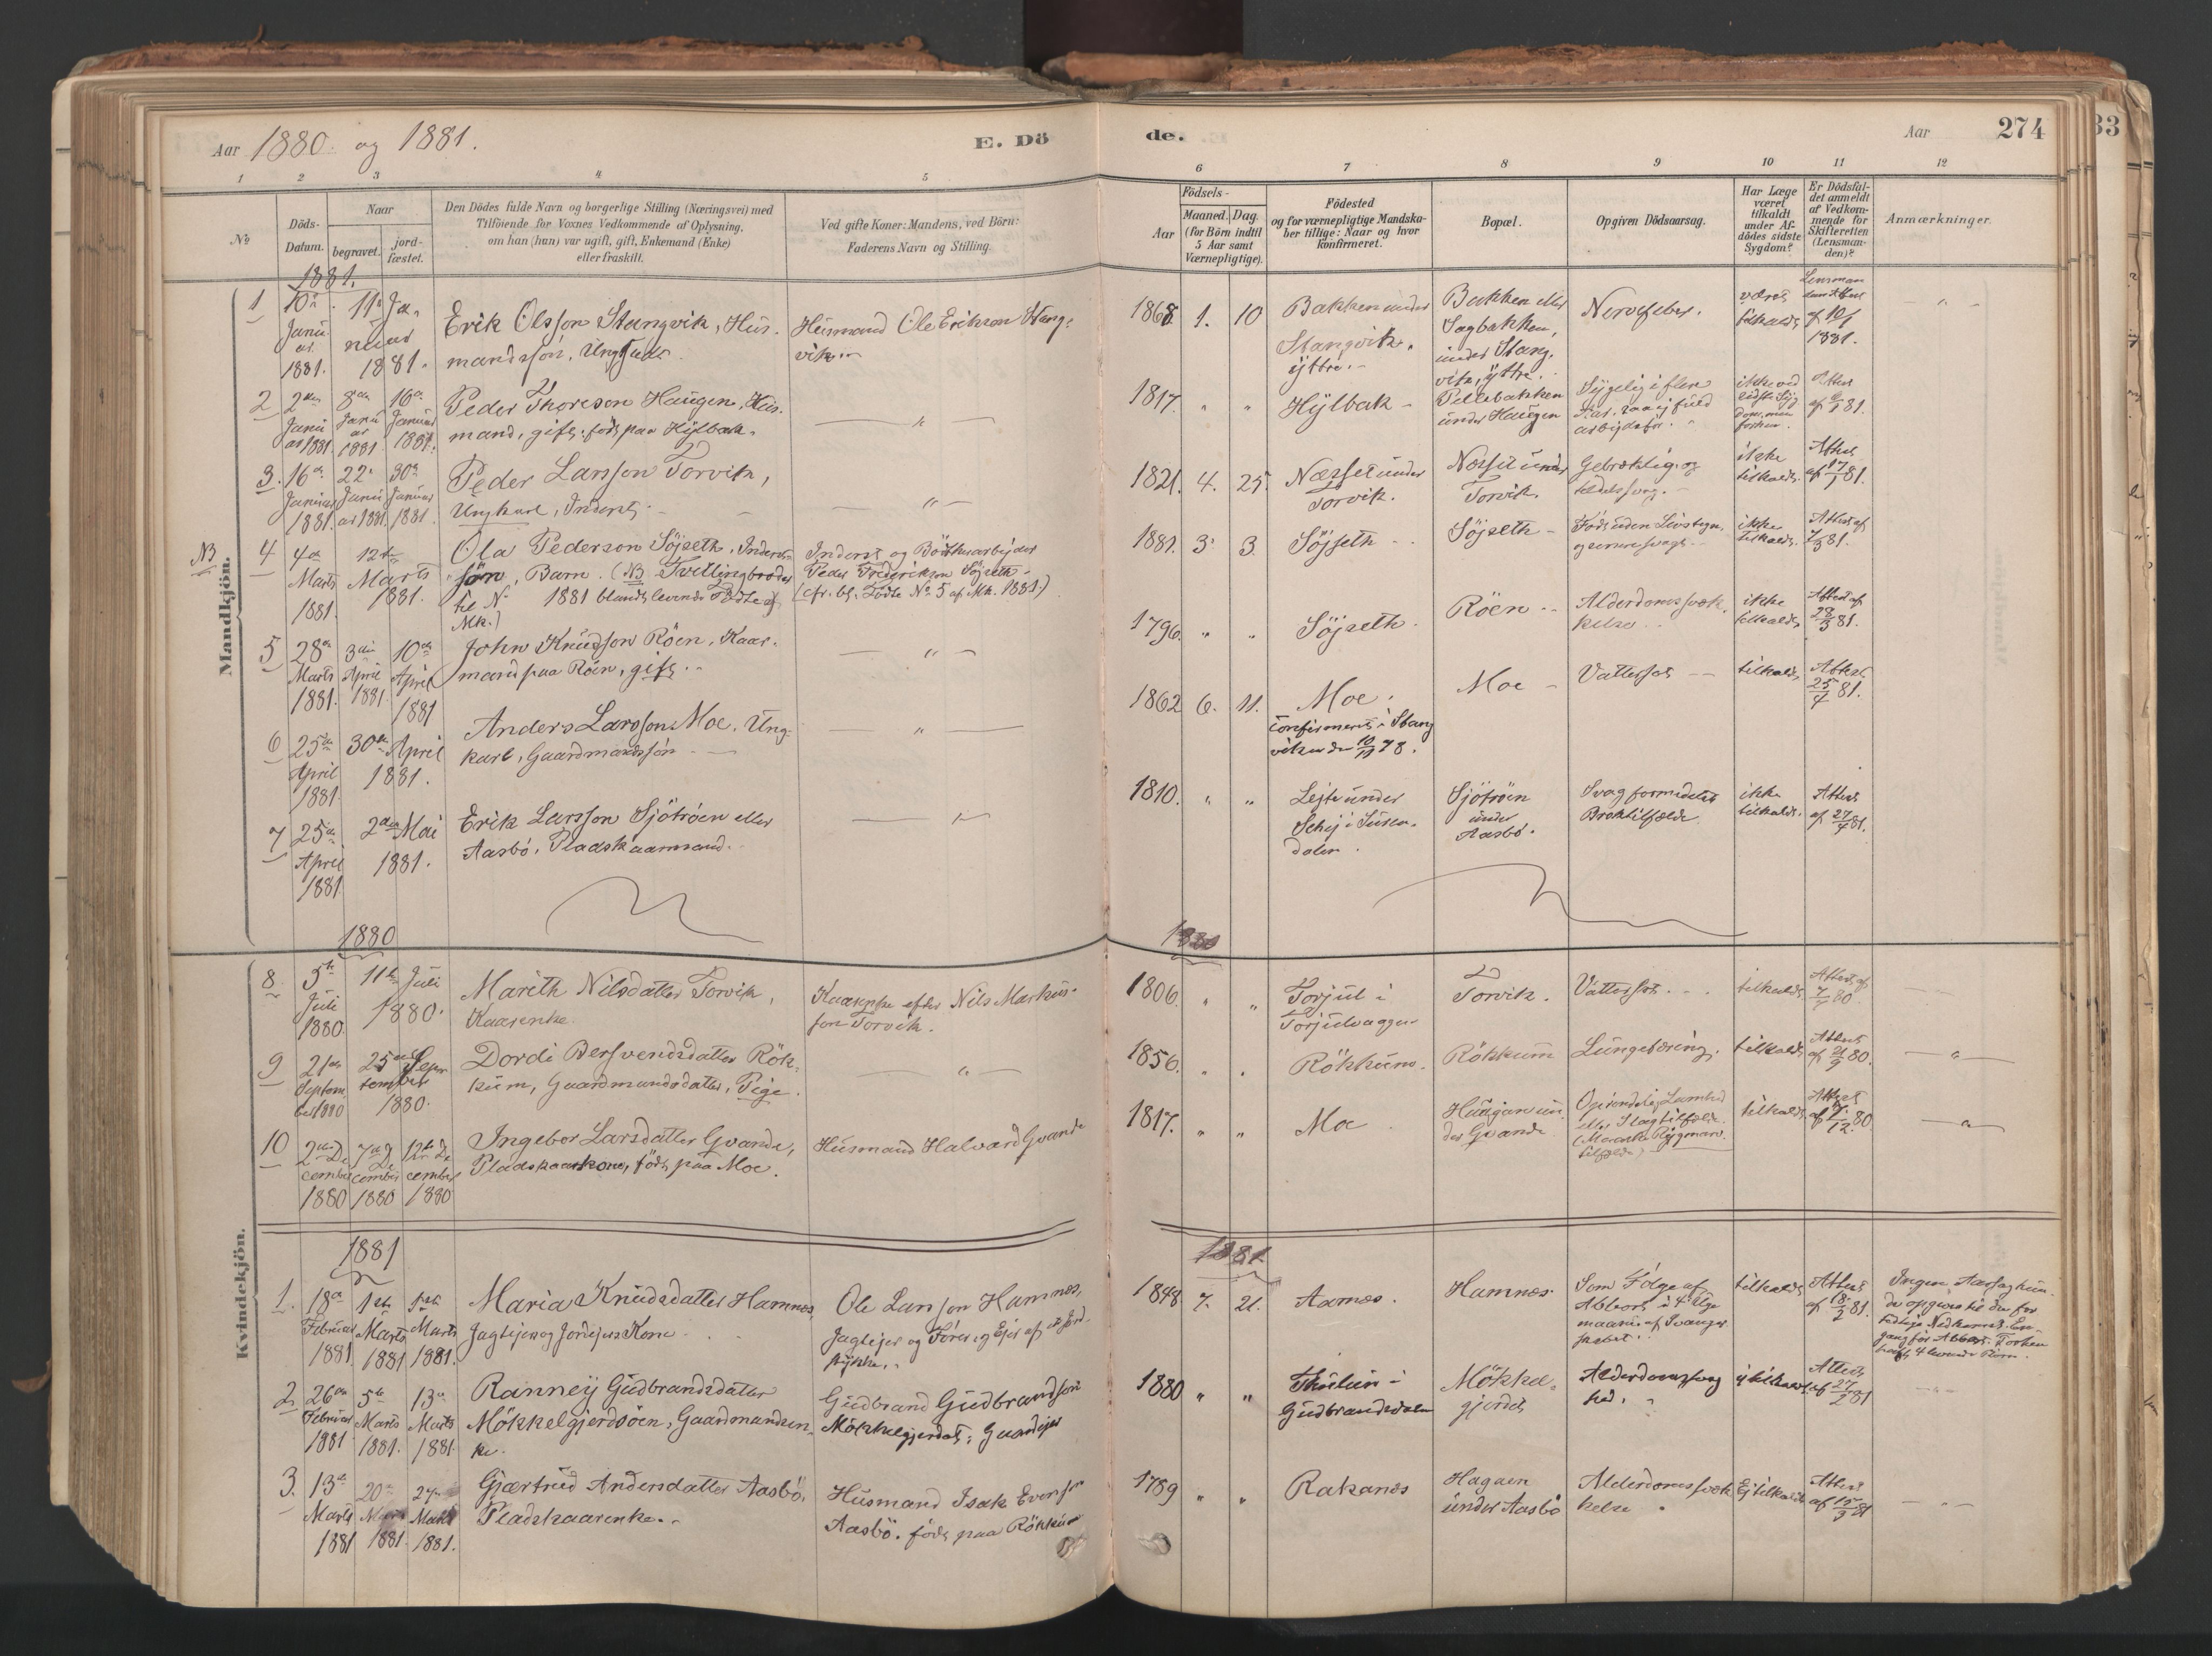 Aar 1880 og 1881.
E. Dö
de.
Aar
274
33
1 2 3 4 5 6 7 8 9 10 11 12
No
Döds-
Datum.
Naar
begravet.
jord-
fæstet.
Den Dödes fulde Navn og borgerlige Stilling (Næringsvei) med
Tilföiende for Voxnes Vedkommende af Oplysning,
om han (hun) var ugift, gift, Enkemand (Enke)
eller fraskilt.
Ved gifte Koner: Mandens, ved Börn:
Faderens Navn og Stilling.
Födsels-
Aar
Maaned.
Dag.
(for Börn indtil
5 Aar samt
Værnepligtige).
Födested
og for værnepligtige Mandska-
ber tillige: Naar og hvor
konfirmeret.
Bopæl.
Opgiven Dödsaarsag.
Har Læge
været
tilkaldt
under Af-
dödes sidste
Sygdom?
Er Dödsfal-
det anmeldt
af Vedkom-
mende for
Skifteretten
(Lensman-
den)?
Anmærkninger.
Mandkjön.
1881.
1 10de Januar 1881. 11te Januar 1881.
Erik Olsson Stangvik, Hus-
mandssön, Ungkarl.
Husmand Ole Erikson Stang-
vik.
1868 1. 10
Bakken under
Stangvik,
yttre.
Bakken eller
Sagbakken,
under Stang-
vik, yttre.
Nervefeber.
været
tilkaldt
Lensman
af 10/1
1881.
2 2den Januar 1881. 8de Januar 1881 16de Januar 1881.
Peder Thoreson Haugen, Hus-
mand, gift, født paa Hylbak.
1817. " "
Hylbak
Pellebakken
under Haugen
Sygelig i flere
Aar,
ikke ved
Attest
af 2/1 81.
3. 16de Januar 1881. 22de Januar 1881. 30te Januar 1881
Peder Larsson Torvik,
Ungkarl, Inderst
1821. 4. 25.
Næsset under
Torvik.
Næsset under
Torvik.
Gebrækelig og
ikke
tilkaldt.
Attest
af 17/1 81.
NB
4 4de Marts 1881. 12te Marts 1881.
Ola Pederson Söjseth, Inderst-
sön, Barn. (NB Tvillingbroder
til No 1881 blandt levende Födte af
Mk.)
Inderst og Böstkearbejder
Peder Frederikson Söjseth
(cfr. bl. Födte No. 5 af Mk. 1881.)
1881. 3 3
Söjseth
Söjseth
Födt uden Livstegn
ikke
tilkaldt.
Attest af
7/3 81.
5 28de Marts 1881. 3die April 1881. 10de April 1881
John Knudson Röen, Kaar-
mand paa Röen, gift.
1796. " "
Söjseth.
Röen
Alderdomssvæk-
kelse
ikke
tilkaldt
Attest af
28/3 81.
6 25de April 1881. 30te April 1881.
Anders Larsson Moe, Ung-
karl, Gaardmandssön
1862 6. 11.
Moe.
Confirmeret i Stang
viken den 10/11 78.
Moe
Vattersot
tilkaldt
Attest
25/4 81.
7 25de April 1881 2den Mai 1881.
Erik Larsson Sjötröen eller
Aasbö, Pladskaarmand.
1810. " "
Lejte under
Schej i Suren-
dalen.
Sjötröen
under
Aasbö.
Svag formedelst
Broktilfælde
ikke
tilkaldt.
Attest
af 27/4 81.
Kvindekjön.
1880
1880
8. 5te Juli 1880 11te Juli 1880.
Marith Nilsdatter Torvik,
Kaarenke.
Kaarenke efter Nils Markus-
son Torvik.
1806. " "
Torjul i
Torjulvaagen
Torvik.
Vattersot.
tilkaldt
Attest af
7/7 80.
9 21de September 1880 25de September 1880.
Dordi Bersvendsdatter Rök-
kum, Gaardmandsdatter, Pige.
1856. " "
Rökkum.
Rökkum
Lungetæring.
tilkaldt
Attest
af 21/9 80.
10 2den December 1880 7de December 1880 12te December 1880
Ingebor Larsdatter Gvande,
Pladskaarkone, födt paa Moe.
Husmand Halvard Gvande
1817. " "
Moe
Haugan un-
der Gvande
eller Slagtilfælde
tilkaldt
Attest
af 12. 80
1881
1881.
1. 18de Februar 1881 1ste Marts 1881 1ste Marts 1881.
Maria Knudsdatter Hamnes,
Jagtejer og Jordejers Kone
Ole Larsson Hamnes,
Jagtejer og Förer og Ejer af et Jord-
stykke.
1848 7. 21.
Aames.
Hamnes
Som Fölge af
Abbort i 4de Uge
maaned af Svanger
skabet.
tilkaldt
Attest
af 18/2 81.
Ingen Aarsag kun-
de opgives til den for
tidlige Nedkomst. En
gang för Abbort. Forhen
havt 4 levende Börn.
2 26de Februar 1881 5te Marts 1881. 13de Marts 1881
Ranney Gudbrandsdatter
Mökkelgjerdsöen, Gaardmandsen-
ke.
Gudbrand Gudbrandson
Mökkelgjerdet, Gaardejer
1880 " "
i
Gudbrandsdalen
Mökkel-
gjerdet
Alderdomssvag
hed.
ej tilkaldt
Attest
af 27/2 81
3. 13de Marts 1881 20de Marts 1881. 27de Marts 1881.
Gjærtrud Andersdatter Aasbö,
Pladskaarenke.
Husmand Isak Evenson
Aasbö. födt paa Rökkum
1789 " "
Rakanes
Hagaen
under Aasbö
Alderdomssvæk
kelse
Ej tilkaldt
Attest
af 15/3 81